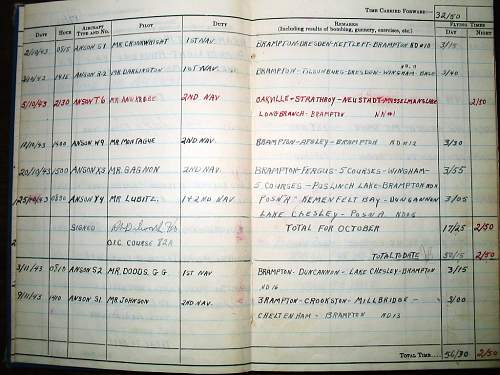 TIME CARRIED FORWARD:— 32/50
DATE HOUR AIRCRAFT TYPE AND NO. PILOT DUTY REMARKS FLYING TIMES
(Including results of bombing, gunnery, exercises, etc.) DAY NIGHT
2/10/43 0815 ANSON S1 MR. 1ST NAV. BRAMPTON-DRESDEN-KETTLEPT-BRAMPTON ND#10 3/15
1415 ANSON MR. DARLINGTON 1ST NAV. BRAMPTON-TILSONBURG-DRESDEN-WINGHAM-BASE 3/40
5/10/43 2130 ANSON T6 MR. 2ND NAV OAKVILLE-STRATHROY-NEUSTADT-MUSSELMANS LAKE
LONG BRANCH-BRAMPTON NN#1 2/50
1400 ANSON W9 MR MONTAGUE 2ND NAV. BRAMPTON-APSLEY-BRAMPTON ND#12 3/30
20/10/43 1500 ANSON X3 MR. GAGNON 2ND NAV. BRAMPTON-FERGUS-5 COURSES-WINGHAM- 3/55
5 COURSES-PUSLINCH LAKE-BRAMPTON
0830 ANSON Y4 MR. LUBITZ. 1+2 ND NAV POSN "A" KEMENFELT BAY-DUNGANNON 3/05
LAKE CHESLEY-POSN A ND26
SIGNED TOTAL FOR OCTOBER 17/25 2/50
O.I.C. COURSE 82A
TOTAL TO DATE 50/15 2/50
3/11/43 0810 ANSON S2 MR. DODDS. G.G. 1ST NAV BRAMPTON-DUNCANNON-LAKE CHESLEY-BRAMPTON 3/15
ND16
9/11/43 1410 ANSON S1 MR. JOHNSON 2ND NAV. BRAMPTON-CROOKSTON-MILLBRIDGE- 3/00
CHELTENHAM-BRAMPTON ND13
TOTAL TIME 56/30 2/50